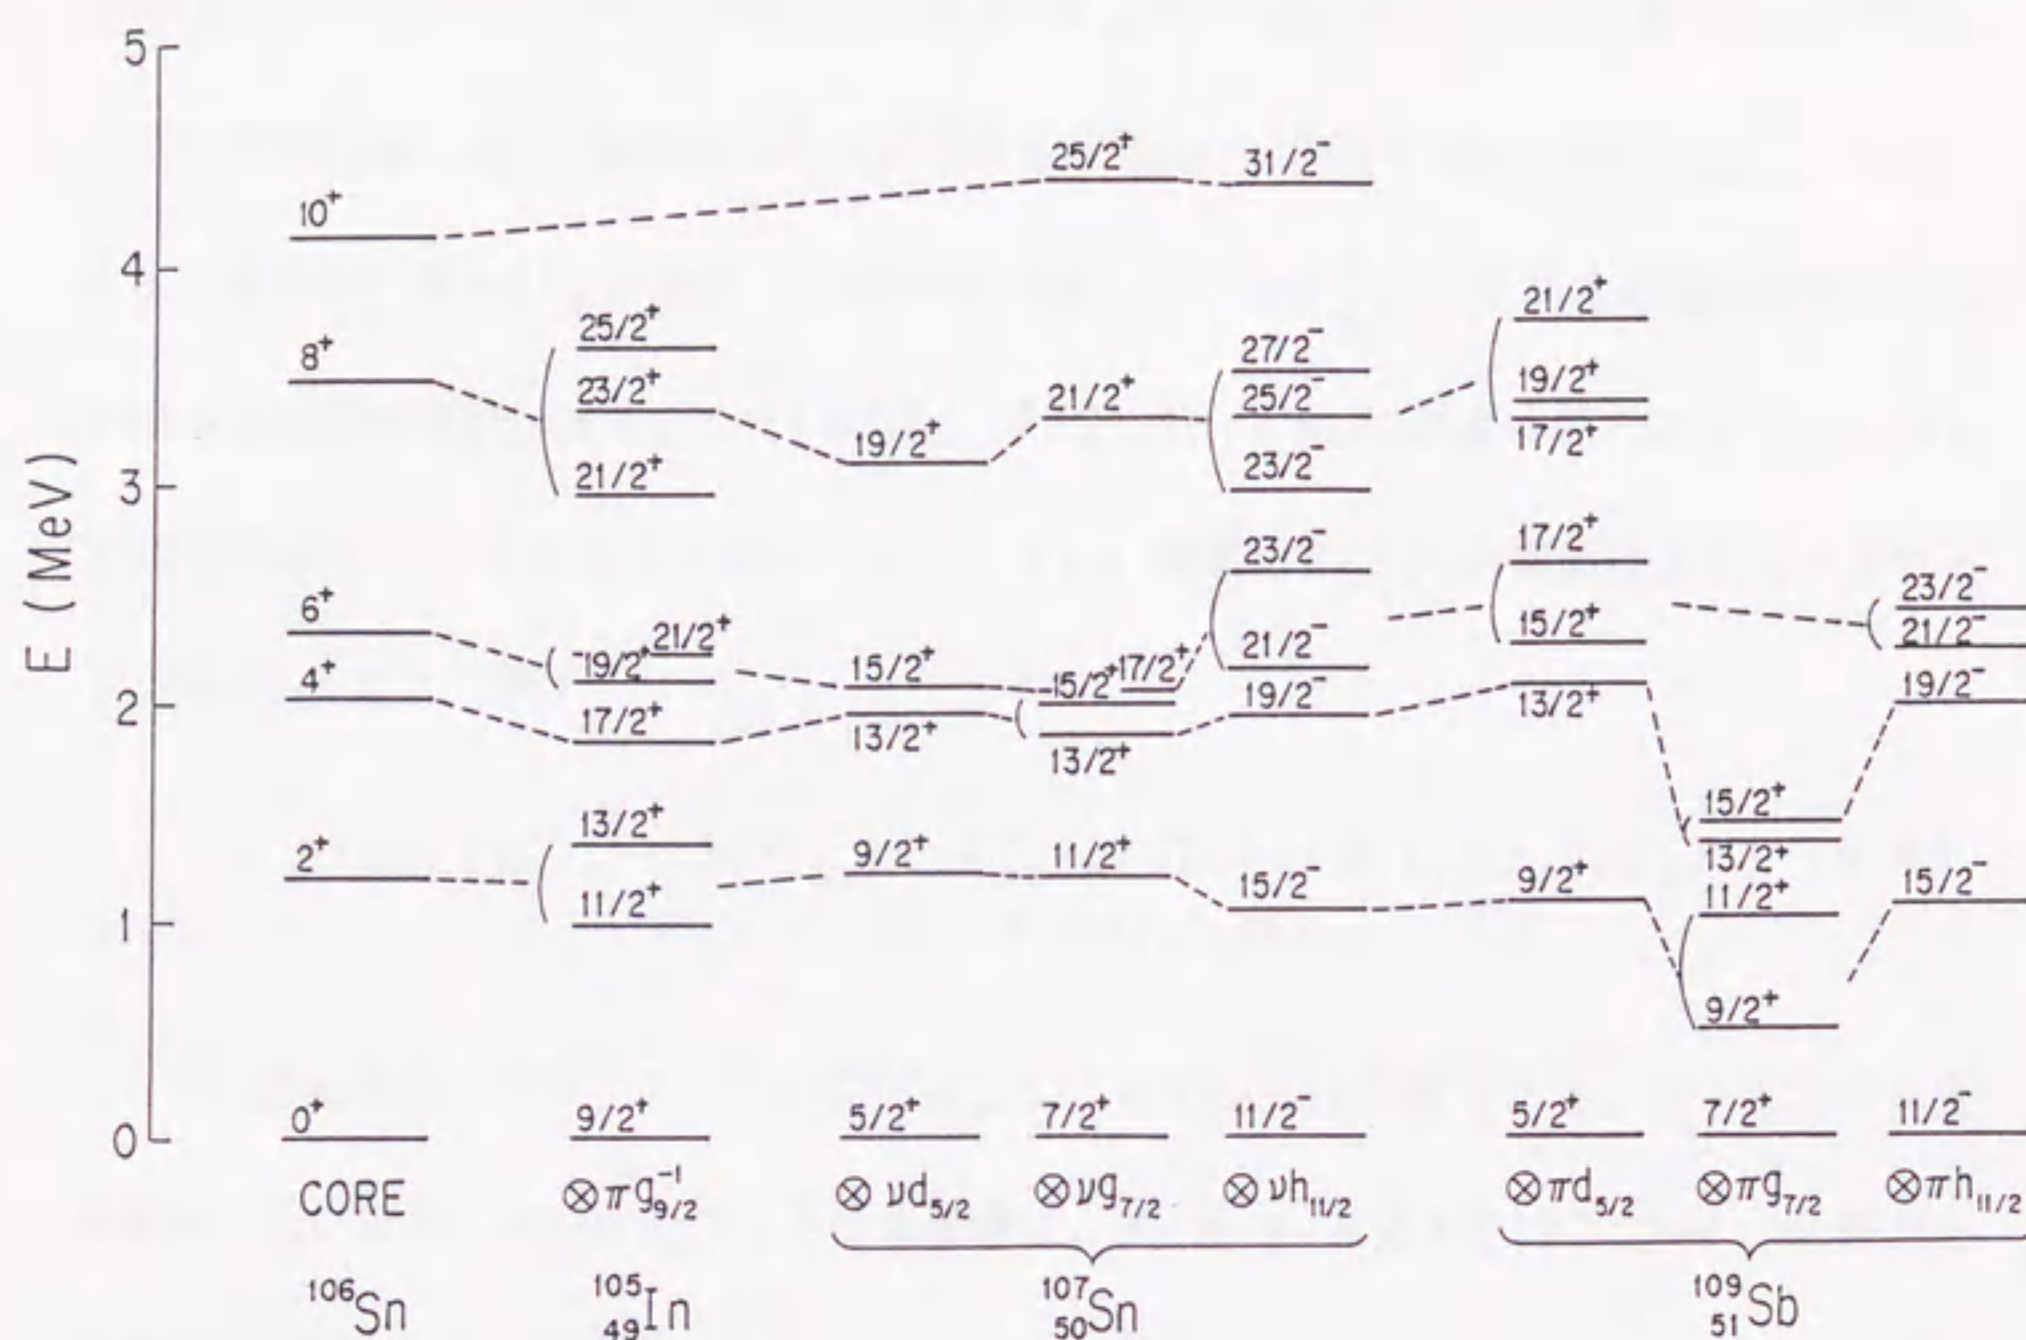 5
4
3
2
1
0
E (MeV)
10⁺
8⁺
6⁺
4⁺
2⁺
0⁺
CORE
¹⁰⁶Sn
25/2⁺
23/2⁺
21/2⁺
21/2⁺
19/2⁺
17/2⁺
13/2⁺
11/2⁺
9/2⁺
⊗πg₉/₂⁻¹
¹⁰⁵₄₉In
19/2⁺
15/2⁺
13/2⁺
9/2⁺
5/2⁺
⊗ νd₅/₂
25/2⁺
21/2⁺
17/2⁺
15/2⁺
13/2⁺
11/2⁺
7/2⁺
⊗νg₇/₂
31/2⁻
27/2⁻
25/2⁻
23/2⁻
23/2⁻
21/2⁻
19/2⁻
15/2⁻
11/2⁻
⊗ νh₁₁/₂
¹⁰⁷₅₀Sn
21/2⁺
19/2⁺
17/2⁺
17/2⁺
15/2⁺
13/2⁺
9/2⁺
5/2⁺
⊗πd₅/₂
15/2⁺
13/2⁺
11/2⁺
9/2⁺
7/2⁺
⊗πg₇/₂
23/2⁻
21/2⁻
19/2⁻
15/2⁻
11/2⁻
⊗πh₁₁/₂
¹⁰⁹₅₁Sb